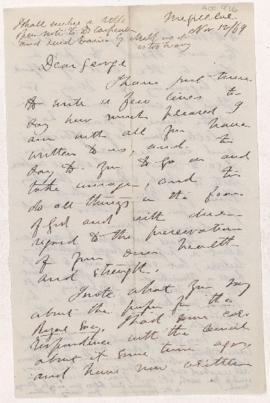 I shall write a
open note to Dr Carpenter
and send
is too busy
McGill Col.
Nov 10/69
Dear George
I have just time
to write a few lines to
say how much pleased I
am with all you have
written to us, and to
say to you to go on and
take courage, and to
do all things in the fear
of God and with due
regard to the preservation
of your own health
and strength.
I note what you say
about the paper for the
Royal Soc. I had some cor-
respondence with the
about it some time ago,
and have now written